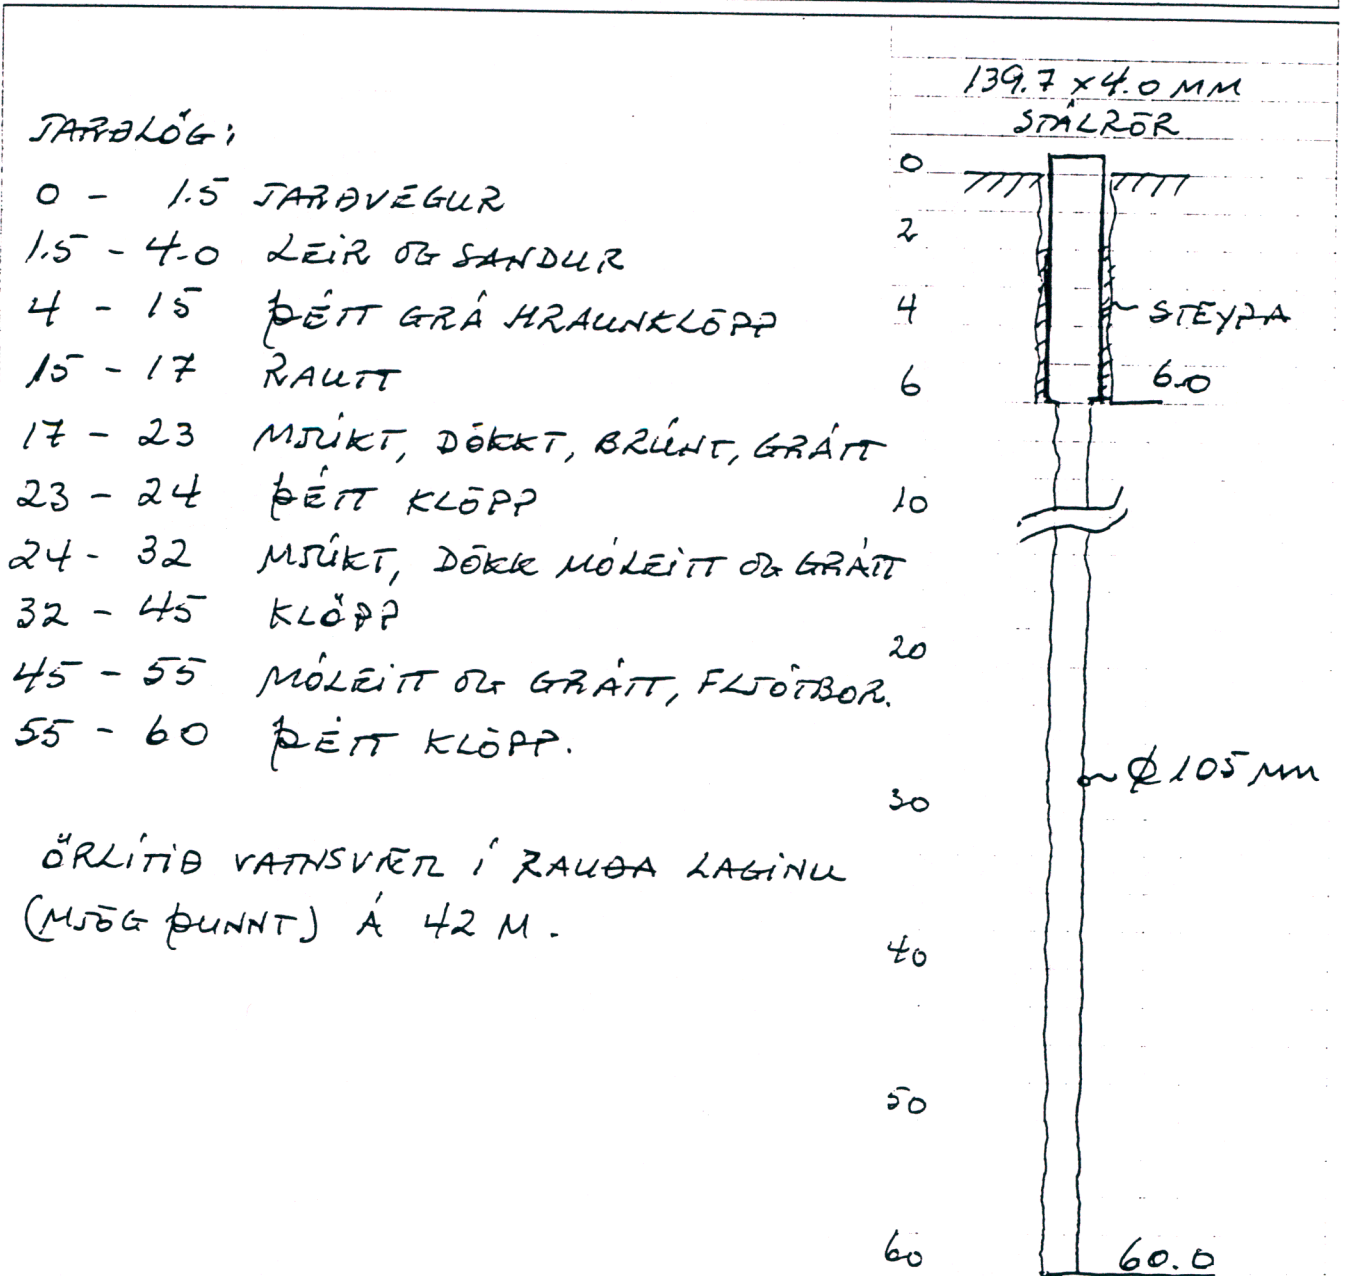 JARÐLÖG:
0 - 1.5 JARÐVEGUR
1.5 - 4.0 LEIR OG SANDUR
4 - 15 ÞÉTT GRÁ HRAUNKLÖPP
15 - 17 RAUTT
17 - 23 MJÚKT, DÖKKT, BRÚNT, GRÁTT
23 - 24 ÞÉTT KLÖPP
24 - 32 MJÚKT, DÖKK MÓLEITT OG GRÁTT
32 - 45 KLÖPP
45 - 55 MÓLEITT OG GRÁTT, FLJÓTBOR.
55 - 60 ÞÉTT KLÖPP.
ÖRLÍTIÐ VATNSVÆTL Í RAUÐA LAGINU
(MJÖG ÞUNNT) Á 42 M.
139.7 x 4.0 MM
STÁLRÖR
0
2
4
STEYPA
6
6.0
10
20
30
Ø 105 MM
40
50
60
60.0